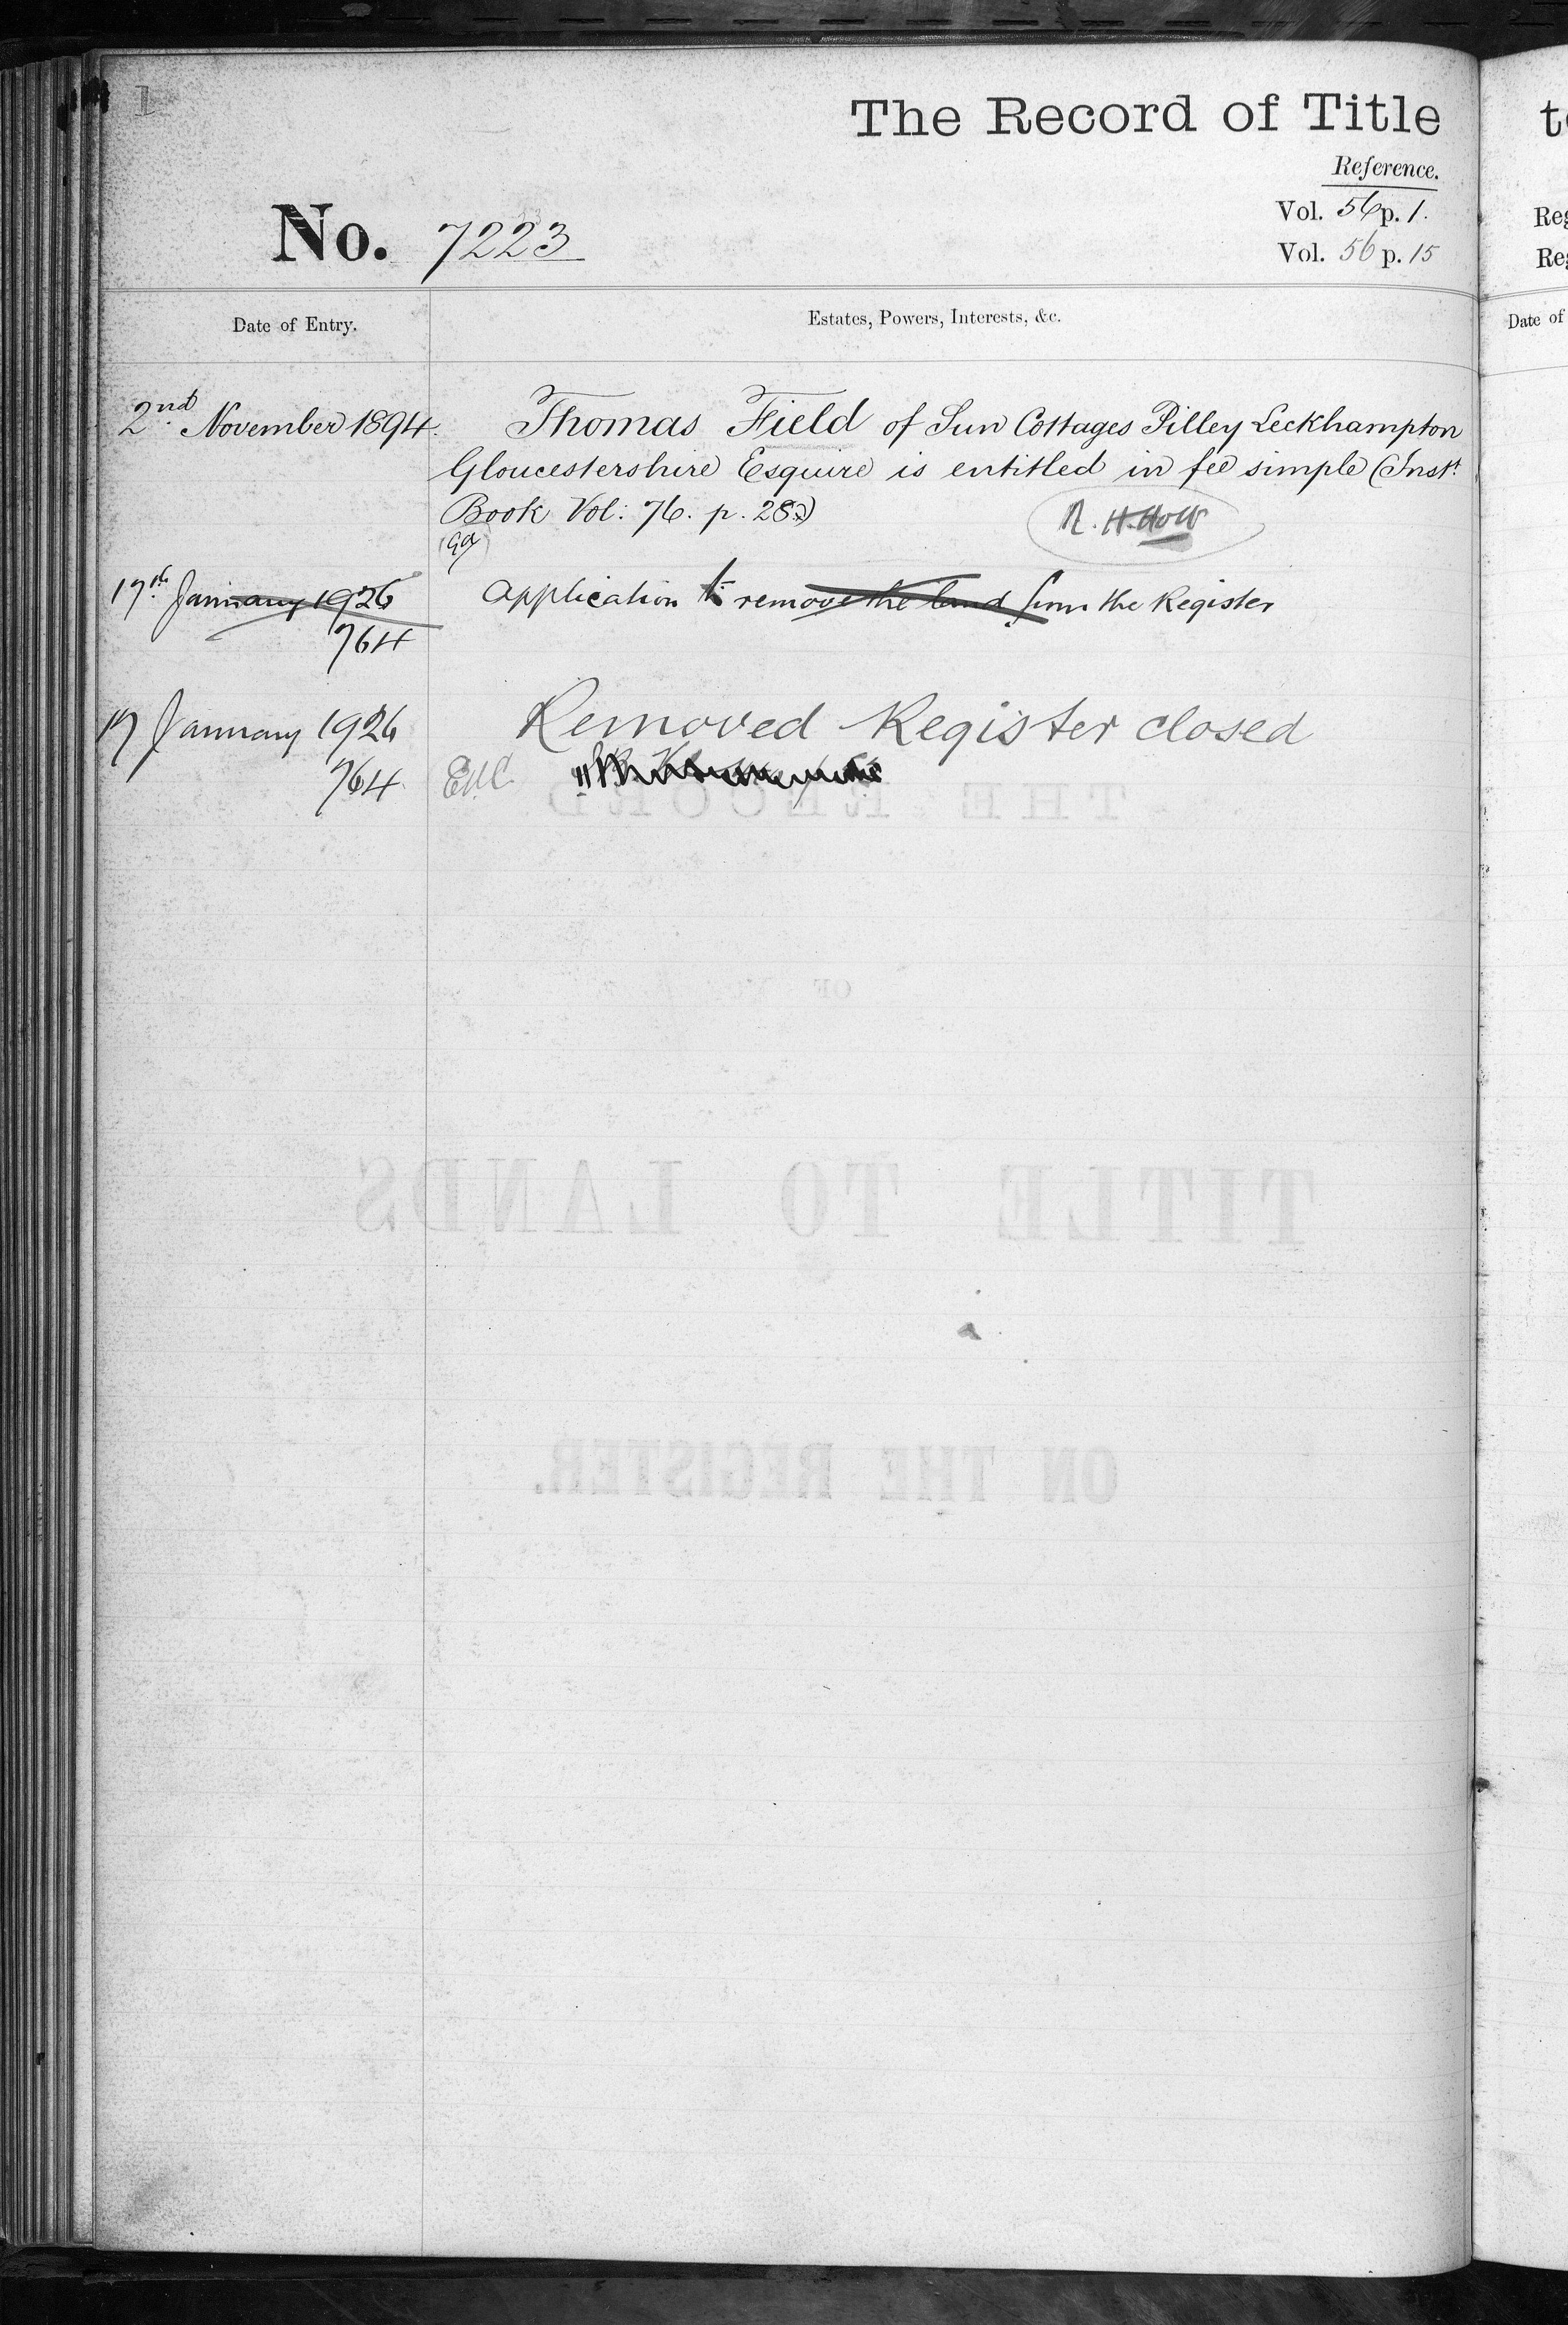 1
The Record of Title
Reference.
No. 7223
Vol. 56 p. 1.
Vol. 56 p. 15
Date of Entry.
Estates, Powers, Interests, &c.
2nd November 1894.
Thomas Field of Sun Cottages Pilley Leckhampton
Gloucestershire Esquire is entitled in fee simple (Inst.
Book Vol: 76. p. 283)
R. H. Holt
17th January 1926
764
Application to remove the land from the Register
17 January 1926
764
Removed Register closed
THE RECORD
OF
TITLE TO LANDS
ON THE REGISTER.
Date of